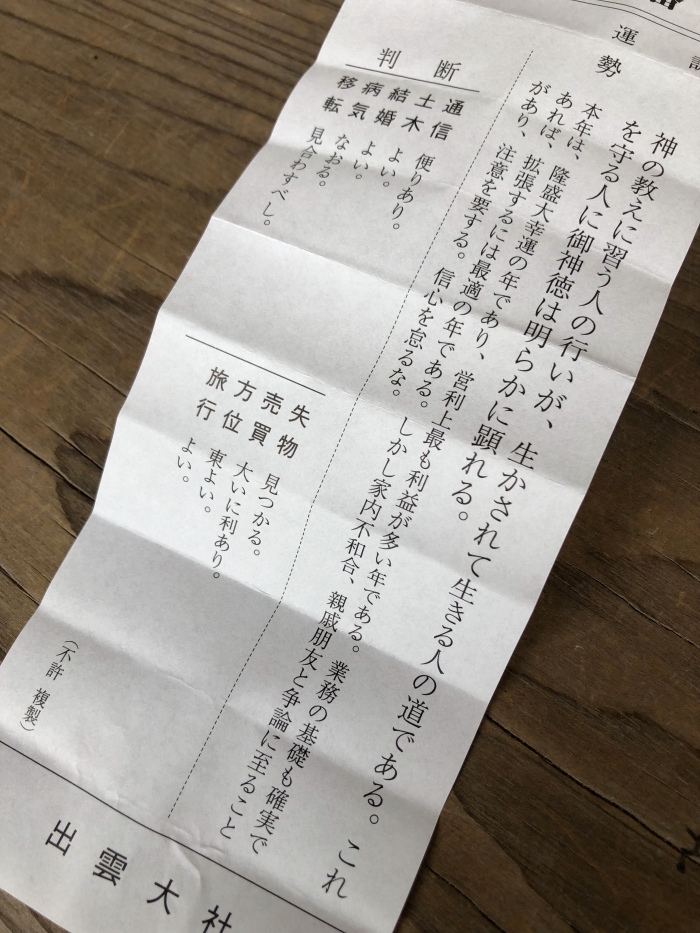 訓
神の教えに習う人の行いが、生かされて生きる人の道である。これ
を守る人に御神徳は明らかに顕れる。
運勢
本年は、隆盛大幸運の年であり、営利上最も利益が多い年である。業務の基礎も確実で
あれば、拡張するには最適の年である。しかし家内不和合、親戚朋友と争論に至ること
があり、注意を要する。信心を怠るな。
判断
通信 便りあり。
土木 よい。
結婚 よい。
病気 なおる。
移転 見合わすべし。
失物 見つかる。
売買 大いに利あり。
方位 東よい。
旅行 よい。
(不許複製)
出雲大社